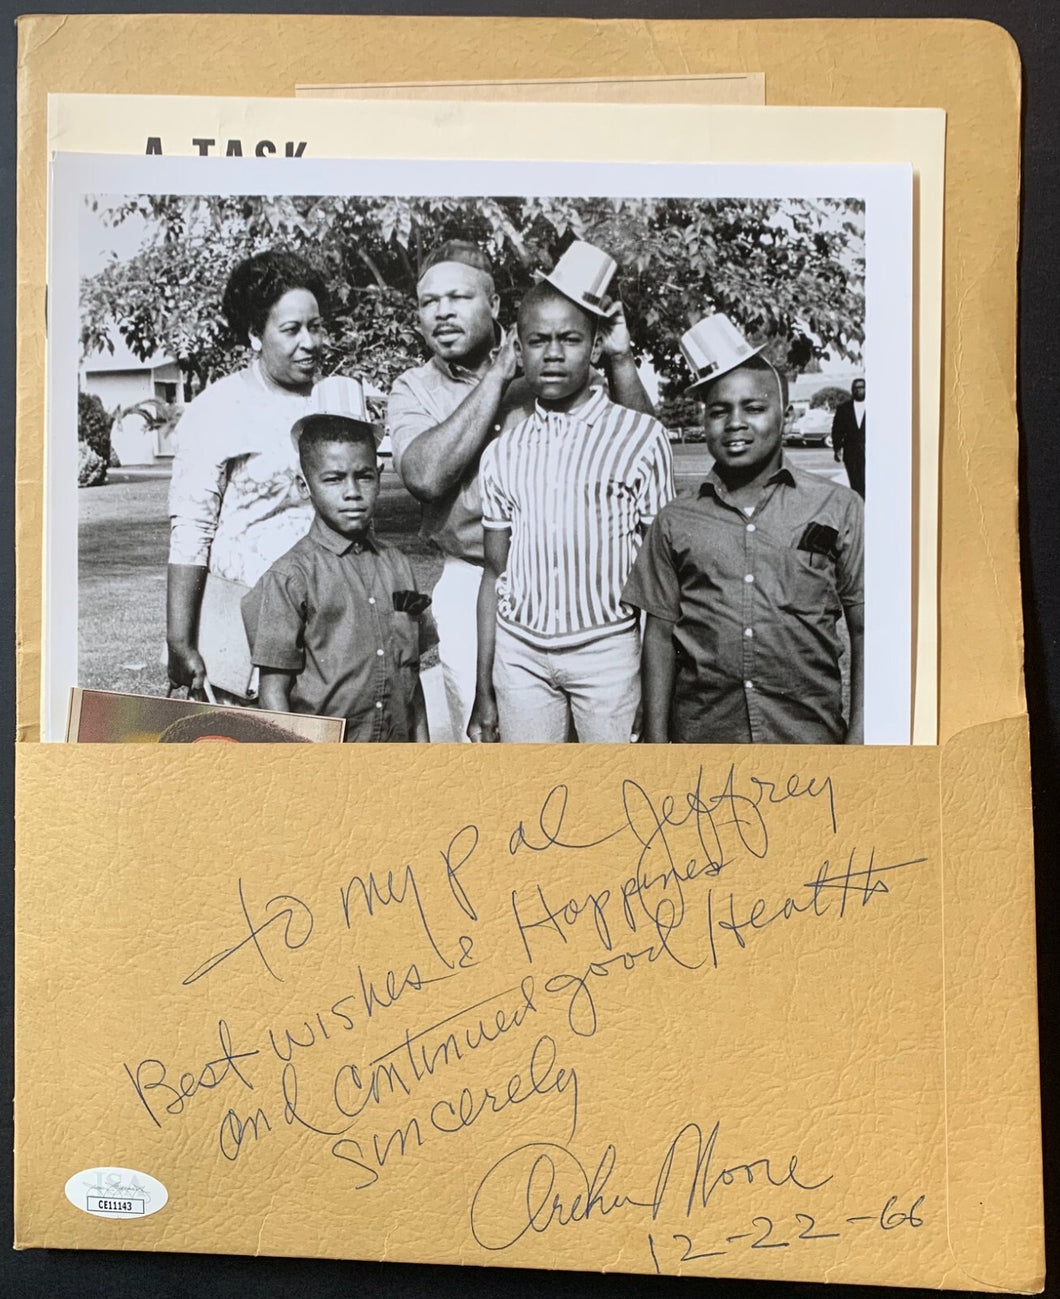 A TASK
to my pal Jeffrey
Best wishes & Happines
and continued good Health
Sincerely
Archie Moore
12-22-66
JSA
CE11143